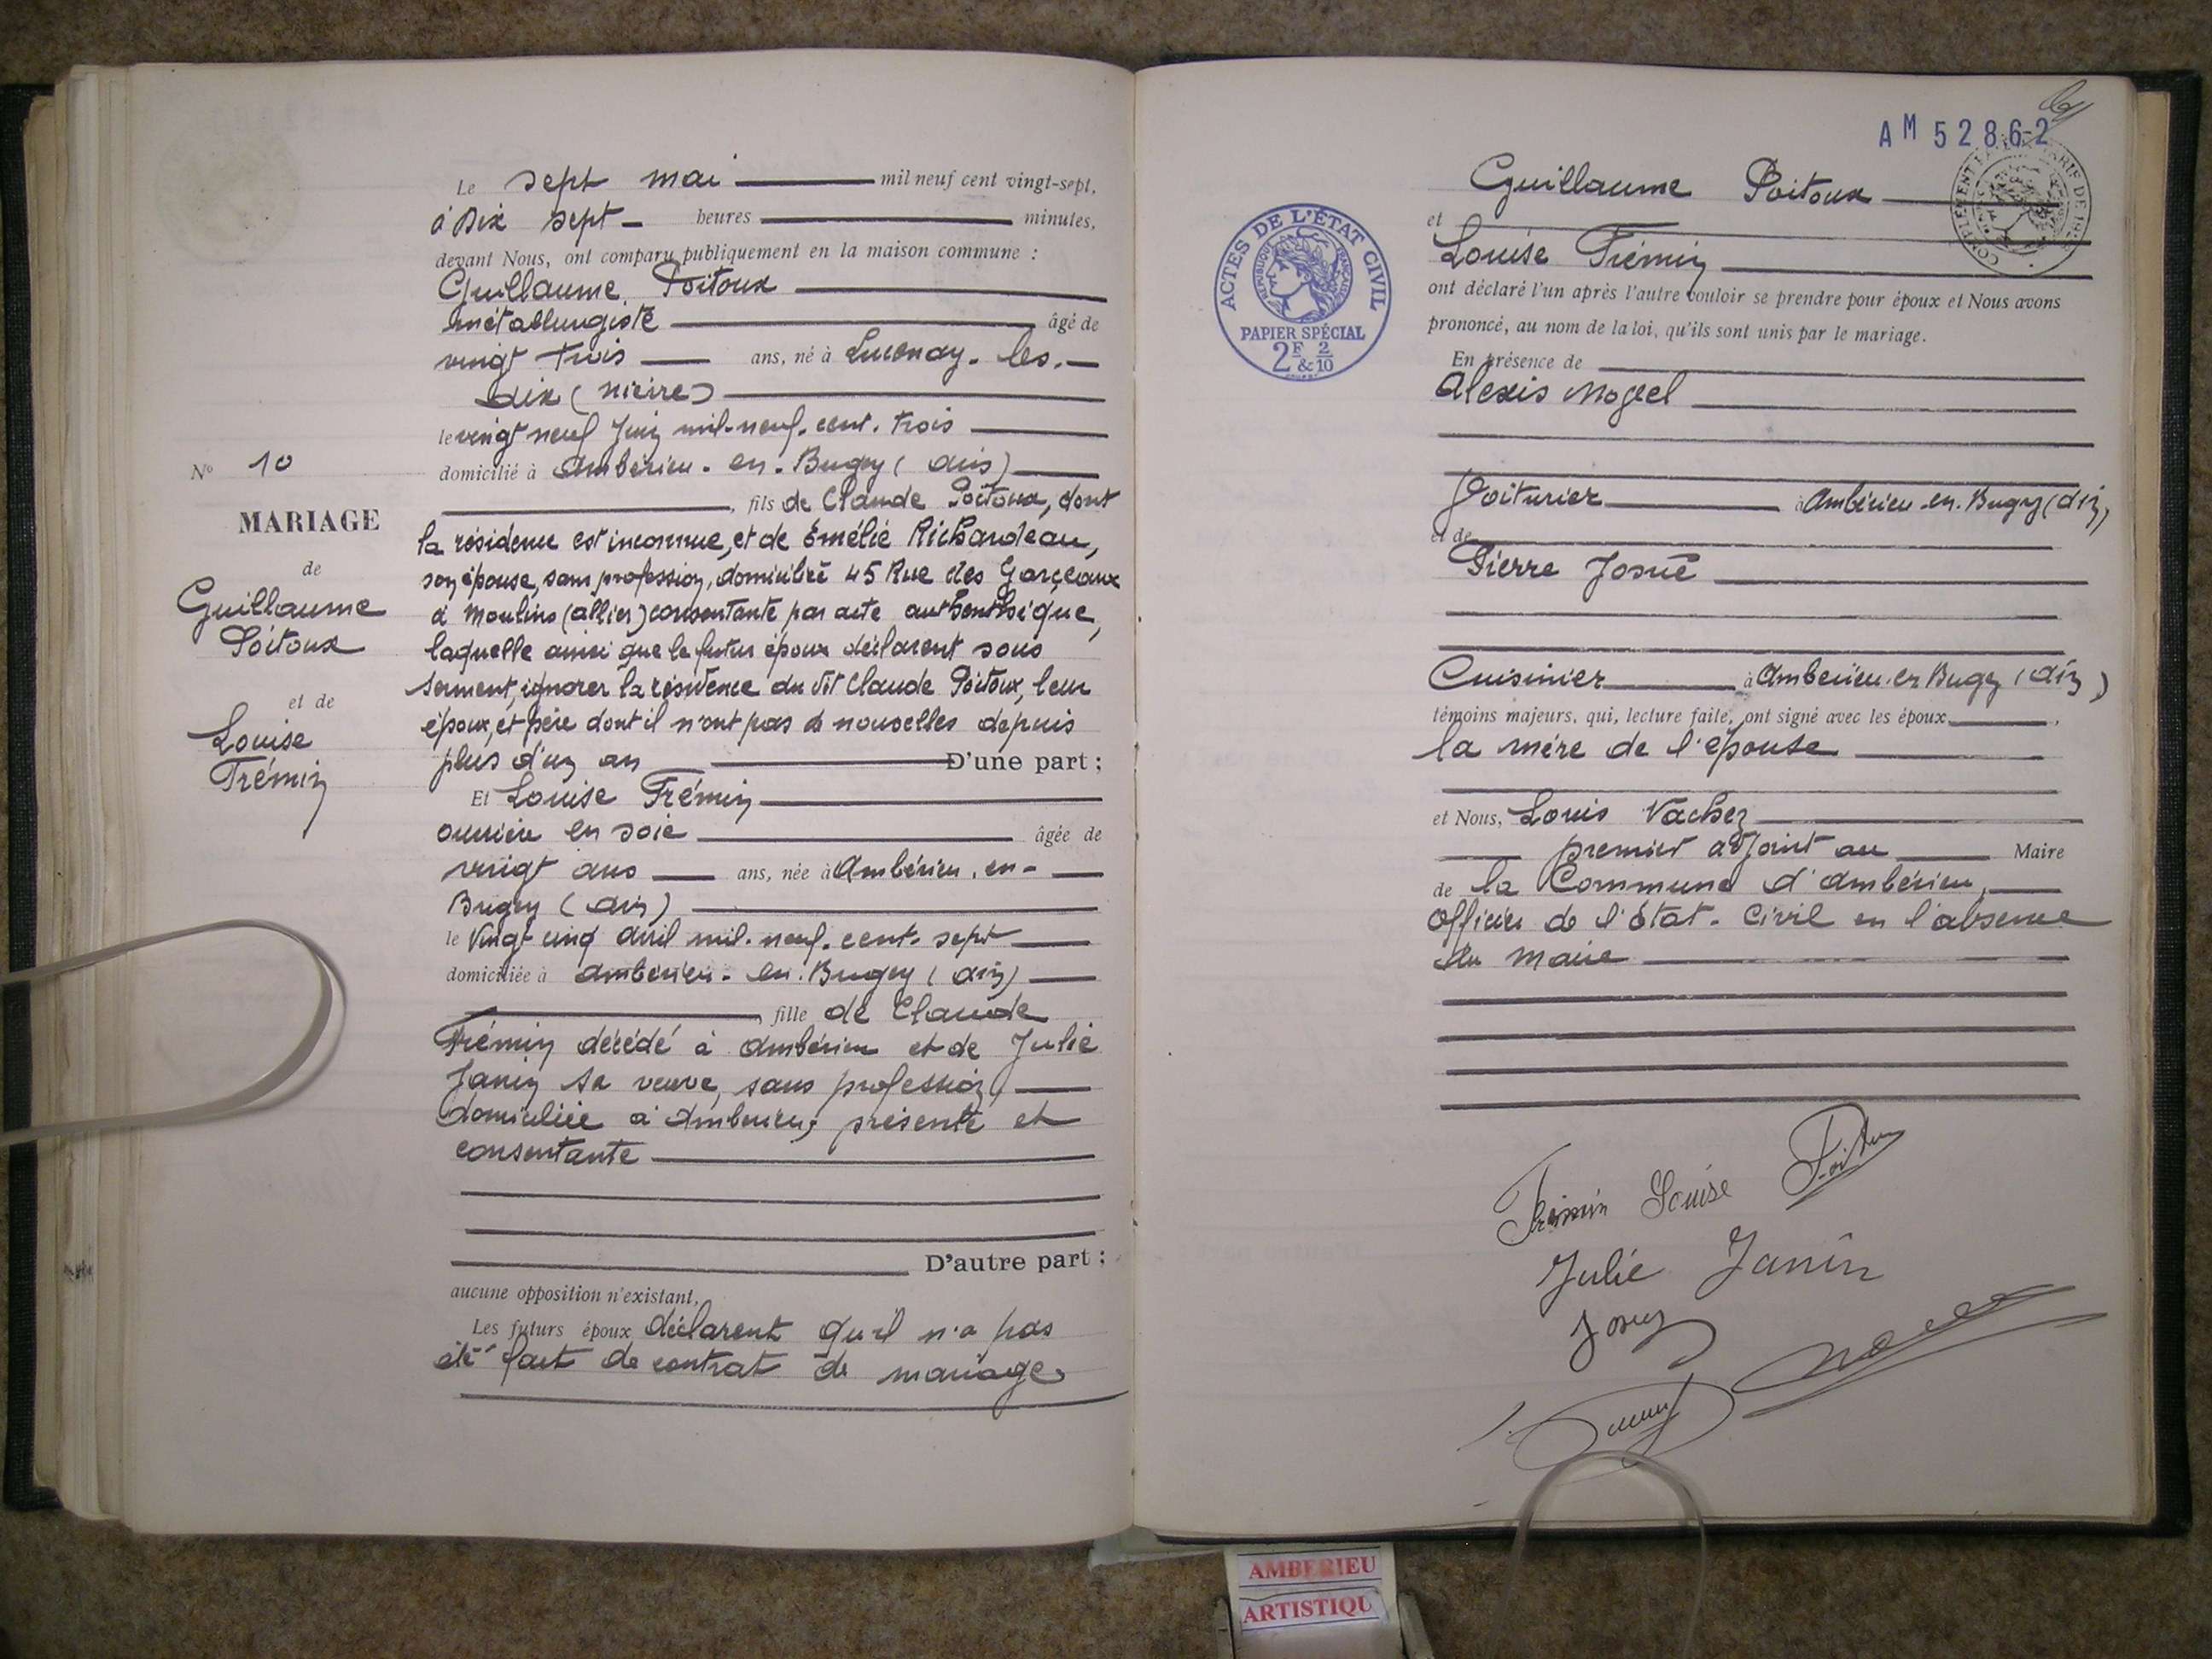 Le sept mai mil neuf cent vingt-sept,
à Dix sept heures minutes,
devant Nous, ont comparu publiquement en la maison commune :
Guillaume Poitoux
métallurgiste âgé de
vingt trois ans, né à Lucenay-les-
aix (nièvre)
le vingt neuf Juin mil-neuf-cent-trois
domicilié à Ambérieu-en-Bugey (ain)
, fils de Claude Poitoux, dont
la résidence est inconnue, et de Émélie Richardeau,
son épouse, sans profession, domiciliée 45 Rue des Garceaux
à Moulins (allier) consentante par acte authentique,
laquelle ainsi que le futur époux déclarent sous
serment, ignorer la résidence du dit Claude Poitoux, leur
époux, et père dont il n'ont pas de nouvelles depuis
plus d'un an D'une part ;
N° 10
MARIAGE
de
Guillaume
Poitoux
et de
Louise
Frémin
Et Louise Frémin
ouvrière en soie âgée de
vingt ans ans, née à Ambérieu-en-
Bugey (ain)
le Vingt cinq avril mil-neuf-cent-sept
domiciliée à ambérieu-en-Bugey (ain)
, fille de Claude
Frémin décédé à ambérieu et de Julie
Janin sa veuve, sans profession,
domiciliée à ambérieu, présente et
consentante
D'autre part ;
aucune opposition n'existant,
Les futurs époux déclarent qu'il n'a pas
été fait de contrat de mariage
AM 52862
Guillaume Poitoux
et
Louise Frémin
ont déclaré l'un après l'autre vouloir se prendre pour époux et Nous avons
prononcé, au nom de la loi, qu'ils sont unis par le mariage.
ACTES DE L'ÉTAT CIVIL
RÉPUBLIQUE FRANÇAISE
PAPIER SPÉCIAL
2F & 2/10
En présence de
Alexis Mogeel
Voiturier à Ambérieu-en-Bugey (ain),
et de
Pierre Josué
Cuisinier à Ambérieu-en Bugey (ain)
témoins majeurs, qui, lecture faite, ont signé avec les époux,
la mère de l'épouse
et Nous, Louis Vachez
premier adjoint au Maire
de la Commune d'ambérieu,
Officier de l'état-Civil en l'absence
du Maire
Frémin Louise Poitoux
Julie Janin
AMBERIEU
ARTISTIQU